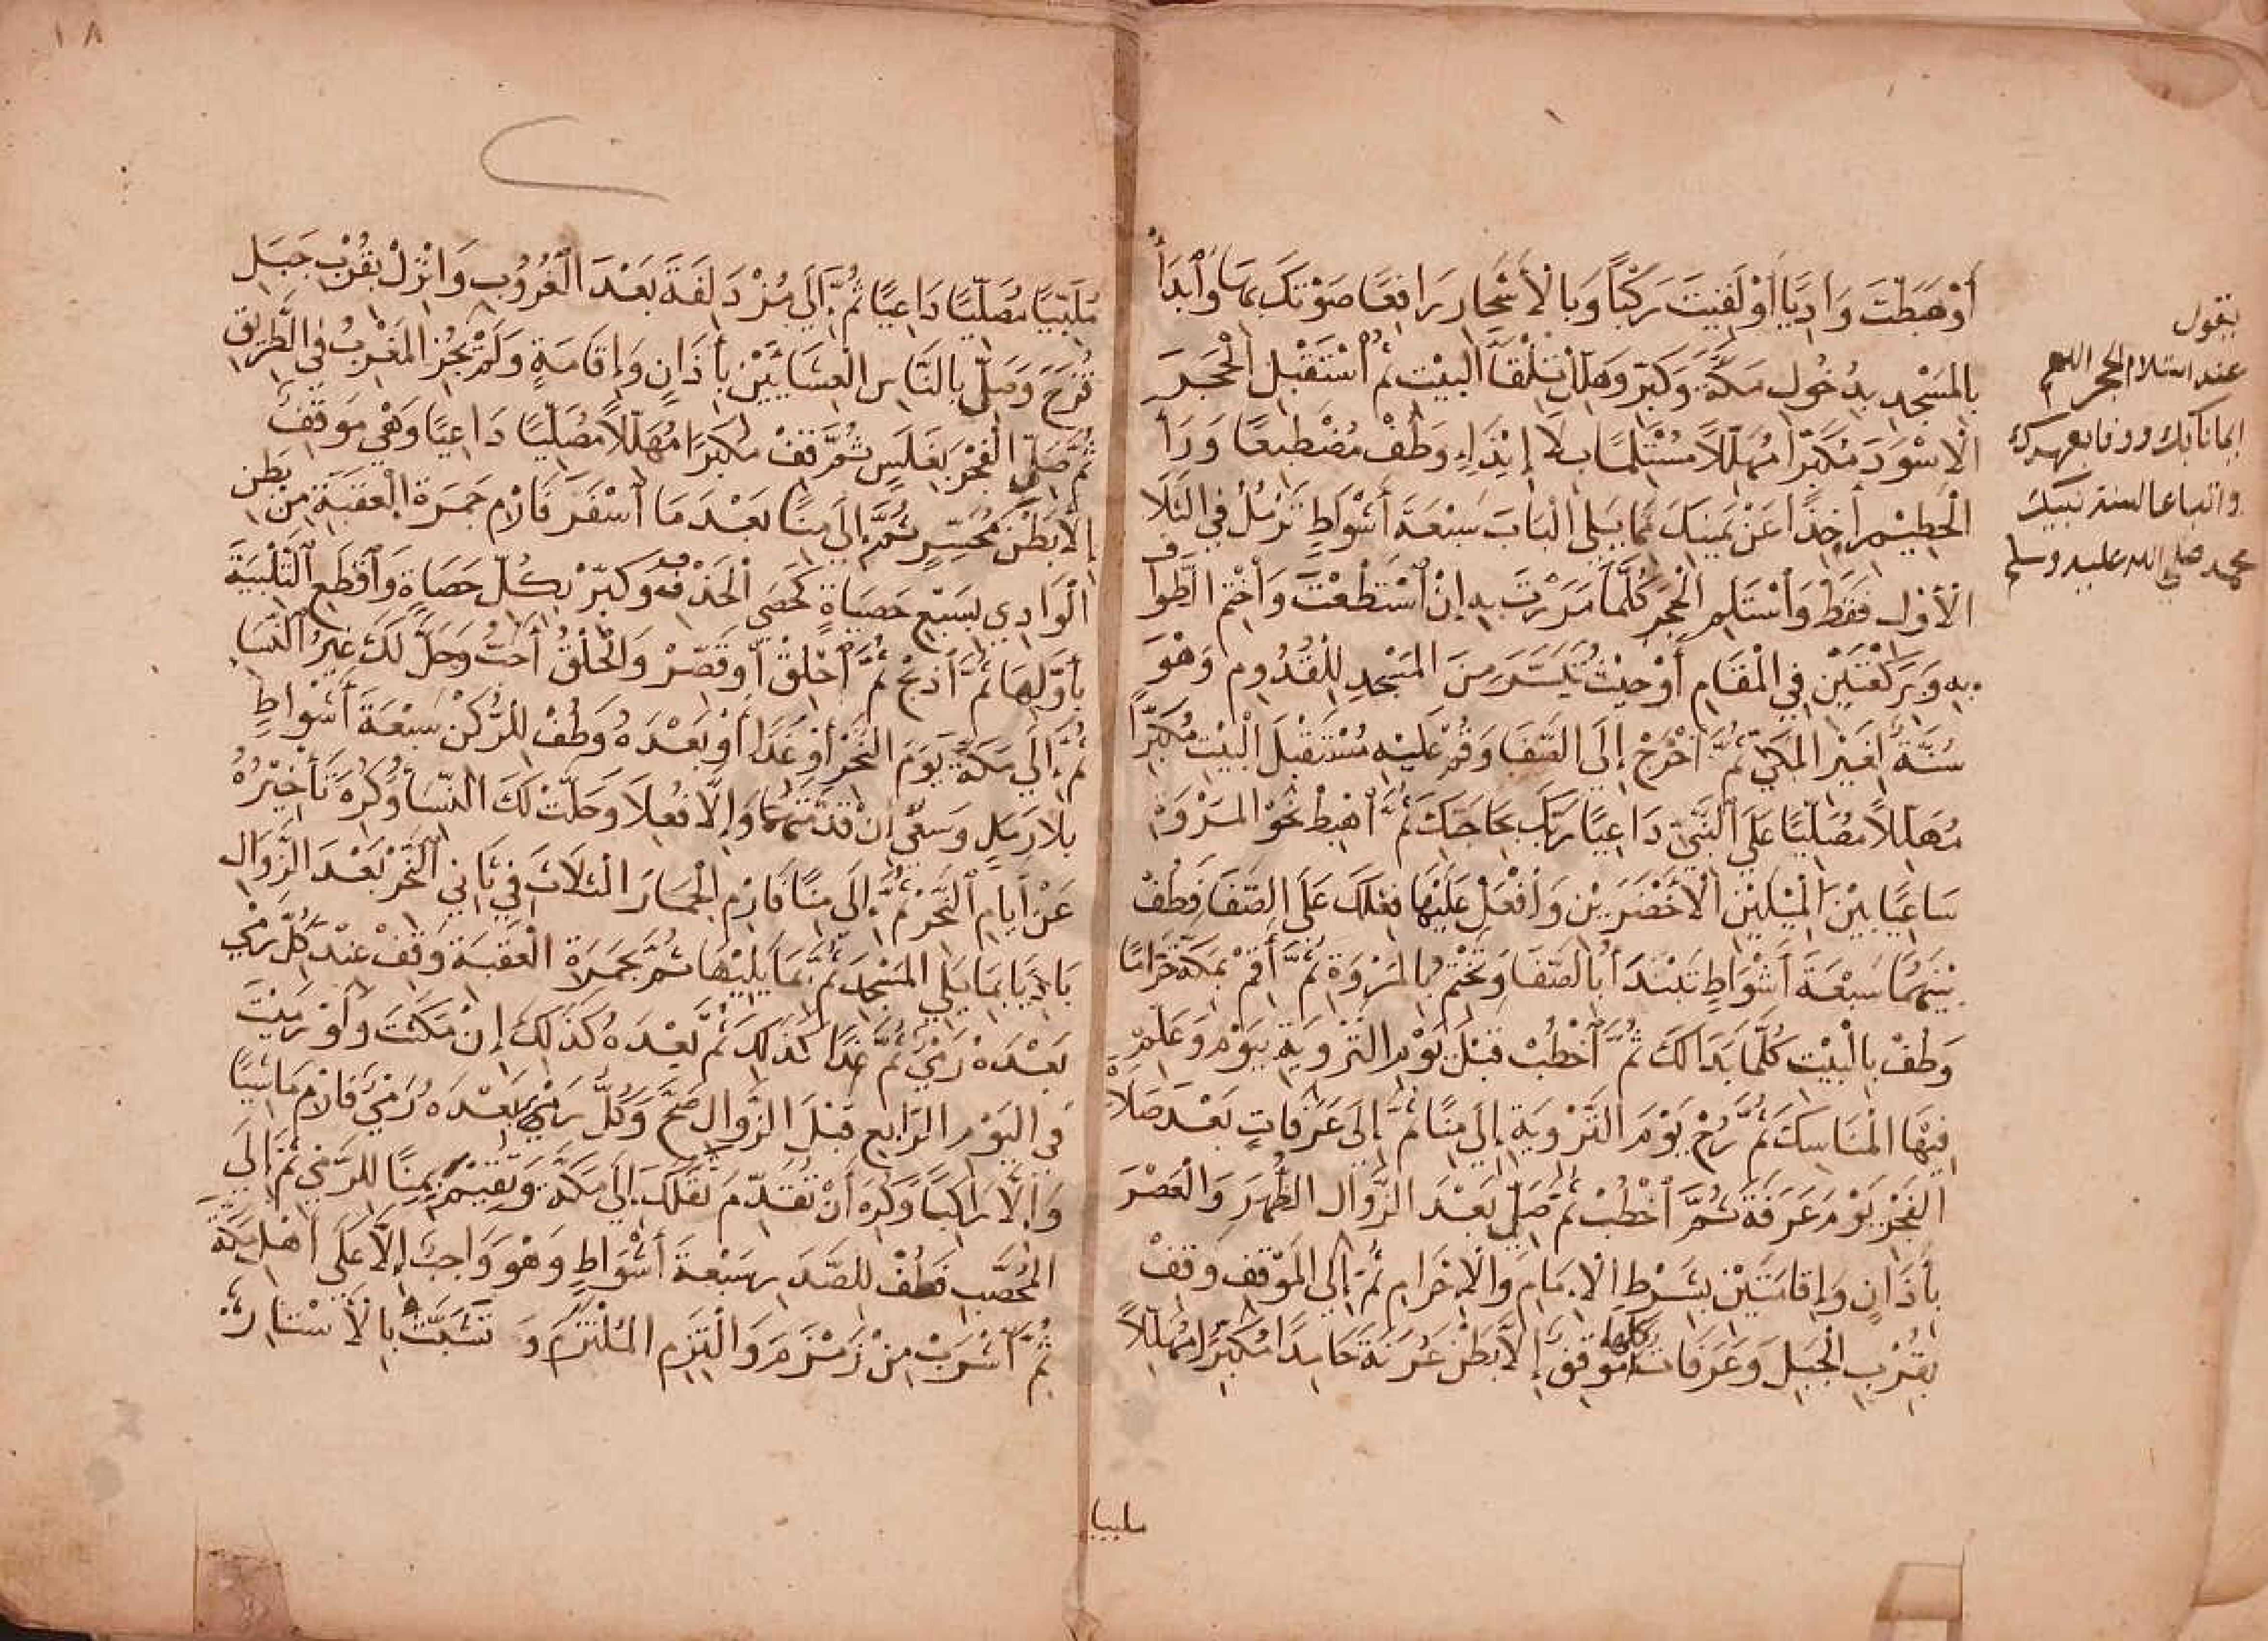 أَوْ هَبَطْتَ وَادِيًا أَوْ لَقِيتَ رَكْبًا وَبِالْأَسْحَارِ رَافِعًا صَوْتَكَ بِهَا وَابْدَأْ
بِالْمَسْجِدِ بِدُخُولِ مَكَّةَ وَكَبِّرْ وَهَلِّلْ تِلْقَاَ الْبَيْتِ ثُمَّ اسْتَقْبِلِ الْحَجَرَ
الْاسْوَدَ مُكَبِّرًا مُهَلِّلًا مُسْتَلِمًا بِلَا إِيْذَاءٍ وَطُفْ مُضْطَبِعًا وَرَأَ
الْحَطِيْمِ آخِذًا عَنْ يَمِينِكَ مِمَّا يَلِي الْبَابَ سَبْعَةَ أَشْوَاطٍ تَرْمُلُ فِي الثَّلَا
الْأُوَلِ فَقَطْ وَاسْتَلِمِ الْحَجَرَ كُلَّمَا مَرَرْتَ بِهِ إِنْ اسْتَطَعْتَ وَاخْتِمِ الطَّوَافَ
بِهِ وَبِرَكْعَتَيْنِ فِي الْمَقَامِ أَوْ حَيْثُ تَيَسَّرَ مِنَ الْمَسْجِدِ لِلْقُدُومِ وَهْوَ
سُنَّةٌ لِغَيْرِ الْمَكِّيِّ ثُمَّ اخْرُجْ إِلَى الصَّفَا وَقُمْ عَلَيْهِ مُسْتَقْبِلَ الْبَيْتِ مُكَبِّرًا
مُهَلِّلًا مُصَلِّيًا عَلَى النَّبِيِّ دَاعِيًا رَبَّكَ بِحَاجَتِكَ ثُمَّ اهْبِطْ نَحْوَ الْمَرْوَةِ
سَاعِيًا بَيْنَ الْمِيْلَيْنِ الْأَخْضَرَيْنِ وَافْعَلْ عَلَيْهَا فِعْلَكَ عَلَى الصَّفَا فَطُفْ
بَيْنَهُمَا سَبْعَةَ أَشْوَاطٍ تَبْتَدَأُ بِالصَّفَا وَتَخْتِمُ بِالْمَرْوَةِ ثُمَّ أَقِمْ بِمَكَّةَ حَرَامًا
وَطُفْ بِالْبَيْتِ كُلَّمَا بَدَا لَكَ ثُمَّ اخْطُبْ قَبْلَ يَوْمِ التَّرْوِيَةِ بِيَوْمٍ وَعَلِّمْ
فِيْهَا الْمَنَاسِكَ ثُمَّ رُحْ يَوْمَ التَّرْوِيَةِ إِلَى مِنًا ثُمَّ إِلَى عَرَفَاتٍ بَعْدَ صَلَاةِ
الْفَجْرِ يَوْمَ عَرَفَةَ ثُمَّ اخْطُبْ ثُمَّ صَلِّ بَعْدَ الزَّوَالِ الظُّهْرَ وَالْعَصْرَ
بِأَذَانٍ وَإِقَامَتَيْنِ بِشَرْطِ الْإِمَامِ وَالْإِحْرَامِ ثُمَّ إِلَى الْمَوْقِفِ وَقِفْ
بِقُرْبِ الْجَبَلِ وَعَرَفَاتٌ كلها مَوْقِفٌ إِلَّا بَطْنَ عُرَنَةَ حَامِدًا مُكَبِّرًا مُهَلِّلًا
ملبيا
يقول
عند استلام الحجر اللهم
ايمانا بك ووفا بعهدك
واتباعا لسنة نبيك
محمد صلي الله عليه وسلم
١٨
مُلَبِّيًا مُصَلِّيًا دَاعِيًا ثُمَّ إِلَى مُزْدَلِفَةَ بَعْدَ الْغُرُوبِ وَانْزِلْ بِقُرْبِ جَبَلِ
قُزَحَ وَصَلِّ بِالنَّاسِ الْعِشَائَيْنِ بِأَذَانٍ وَإِقَامَةٍ وَلَمْ يَجُزِ الْمَغْرِبُ فِي الطَّرِيقِ
ثُمَّ صَلِّ الْفَجْرَ بِغَلَسٍ ثُمَّ قِفْ مُكَبِّرًا مُهَلِّلًا مُصَلِّيًا دَاعِيًا وَهْيَ مَوْقِفٌ
إِلَّا بَطْنَ مُحَسِّرٍ ثُمَّ إِلَى مِنًا بَعْدَ مَا أَسْفَرَ فَارْمِ جَمْرَةَ الْعَقَبَةِ مِنْ بَطْنِ
الْوَادِي بِسَبْعِ حَصَيَاةٍ كَحَصَى الْخَذْفِ وَكَبِّرْ بِكُلِّ حَصَاةٍ وَاقْطَعِ التَّلْبِيَةَ
بِأَوَّلِهَا ثُمَّ اذْبَحْ ثُمَّ احْلِقْ أَوْ قَصِّرْ وَالْحَلْقُ أَحَبُّ وَحَلَّ لَكَ غَيْرُ النِّسَا
ثُمَّ إِلَى مَكَّةَ يَوْمَ النَّحْرِ أَوْ غَدًا أَوْ بَعْدَهُ وَطُفْ لِلرُّكْنِ سَبْعَةَ أَشْوَاطٍ
بِلَا رَمَلٍ وَسَعْيٍ إِنْ قَدَّمْتَهُمَا وَإِلَّا فُعِلَا وَحَلَّتْ لَكَ النِّسَا وَكُرِهَ تَأْخِيْرُهُ
عَنْ أَيَّامِ النَّحْرِ ثُمَّ إِلَى مِنًا فَارْمِ الْجِمَارَ الثَّلَاثَ فِي ثَانِي النَّحْرِ بَعْدَ الزَّوَالِ
بَادِيًا بِمَا يَلِي الْمَسْجِدَ ثُمَّ بِمَا يَلِيْهَا ثُمَّ بِجَمْرَةِ الْعَقَبَةِ وَقِفْ عِنْدَ كُلِّ رَمْيٍ
بَعْدَهُ رَمْيٌ ثُمَّ غَدًا كَذَلِكَ ثُمَّ بَعْدَهُ كَذَلِكَ إِنْ مَكَثْتَ وَلَوْ رَمَيْتَ
فِي الْيَوْمِ الرَّابِعِ قَبْلَ الزَّوَالِ صَحَّ وَكُلُّ رَمْيٍ بَعْدَهُ رَمْيٌ فَارْمِ مَاشِيًا
وَإِلَّا رَاكِبًا وَكُرِهَ أَنْ تُقَدِّمَ ثَقَلَكَ إِلَى مَكَّةَ وَتُقِيْمَ بِمِنًا لِلرَّمْيِ ثُمَّ إِلَى
الْمُحَصَّبِ فَطُفْ لِلصَّدَرِ سَبْعَةَ أَشْوَاطٍ وَهْوَ وَاجِبٌ إِلَّا عَلَى أَهْلِ مَكَّةَ
ثُمَّ اشْرَبْ مِنْ زَمْزَمَ وَالْتَزِمِ الْمُلْتَزَمَ وَ تَشَبَّثْ بِالْأَسْتَارِ